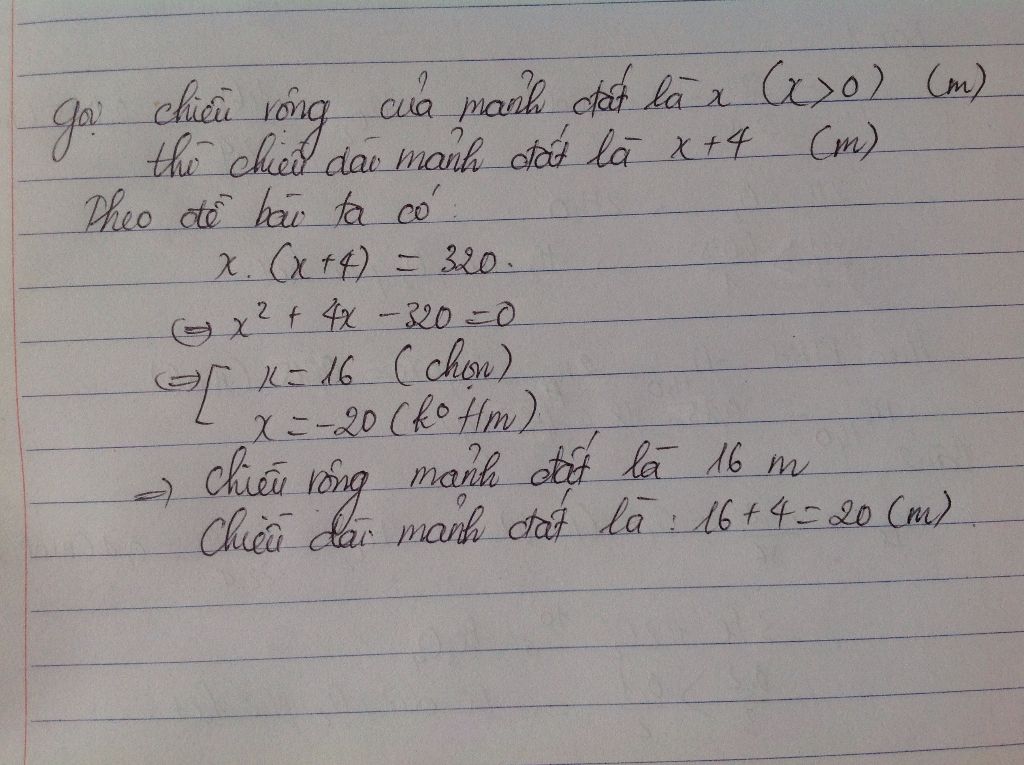 Gọi chiều rộng của mảnh đất là x (x>0) (m)
thì chiều dài mảnh đất là x+4 (m)
Theo đề bài ta có:
x.(x+4) = 320.
⇔ x² + 4x - 320 = 0
⇔ [ x = 16 (chọn)
x = -20 (ko t/m).
⇒ Chiều rộng mảnh đất là 16 m
Chiều dài mảnh đất là: 16+4 = 20 (m).